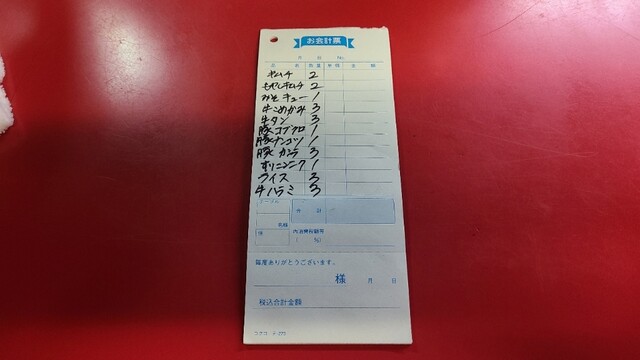 お会計票
月 日 No.
品名 数量 単価 金額
キムチ 2
もやしキムチ 2
みそキュー 1
牛こめかみ 3
牛タン 3
豚コブクロ 1
豚ナンコツ 1
豚カシラ 3
すりニンニク 1
ライス 3
牛ハラミ 3
テーブル
合計
名様
係
内消費税額等
( %)
毎度ありがとうございます。
様 月 日
税込合計金額